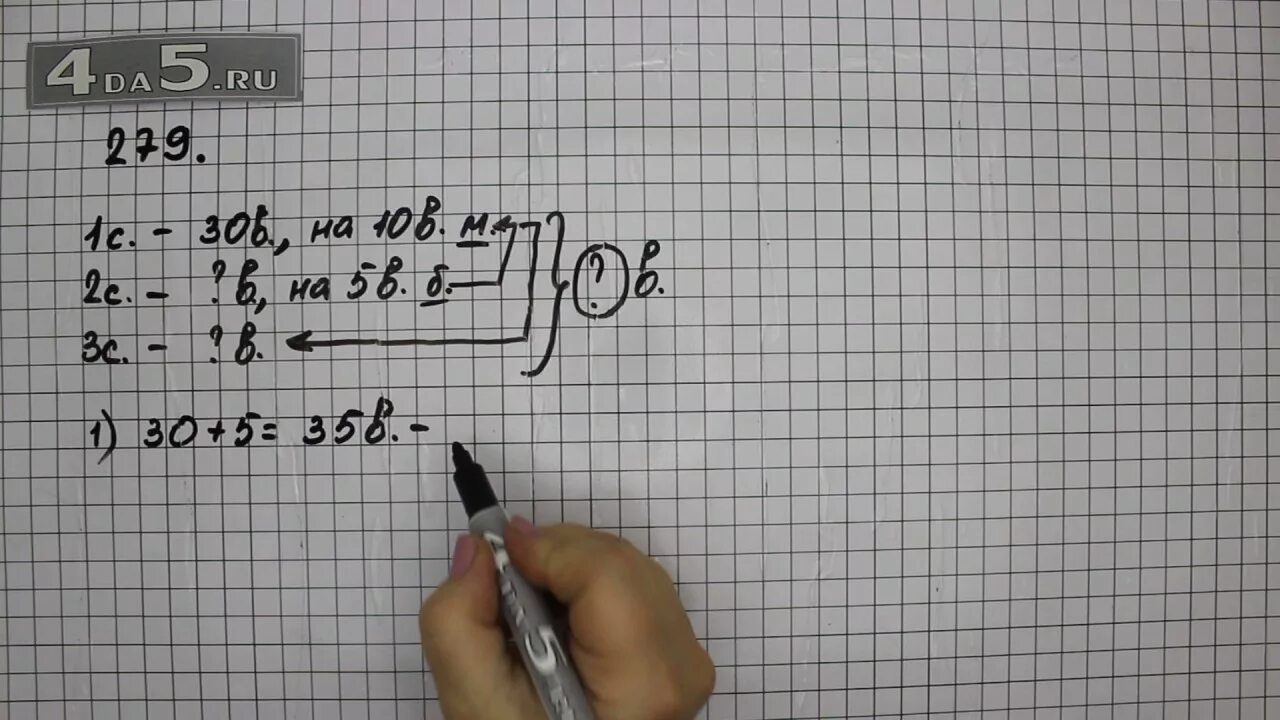 4DA5.RU
279.
1с. - 30в., на 10в. м.
2с. - ?в, на 5в. б.
3с. - ?в.
? в.
1) 30+5= 35в. -